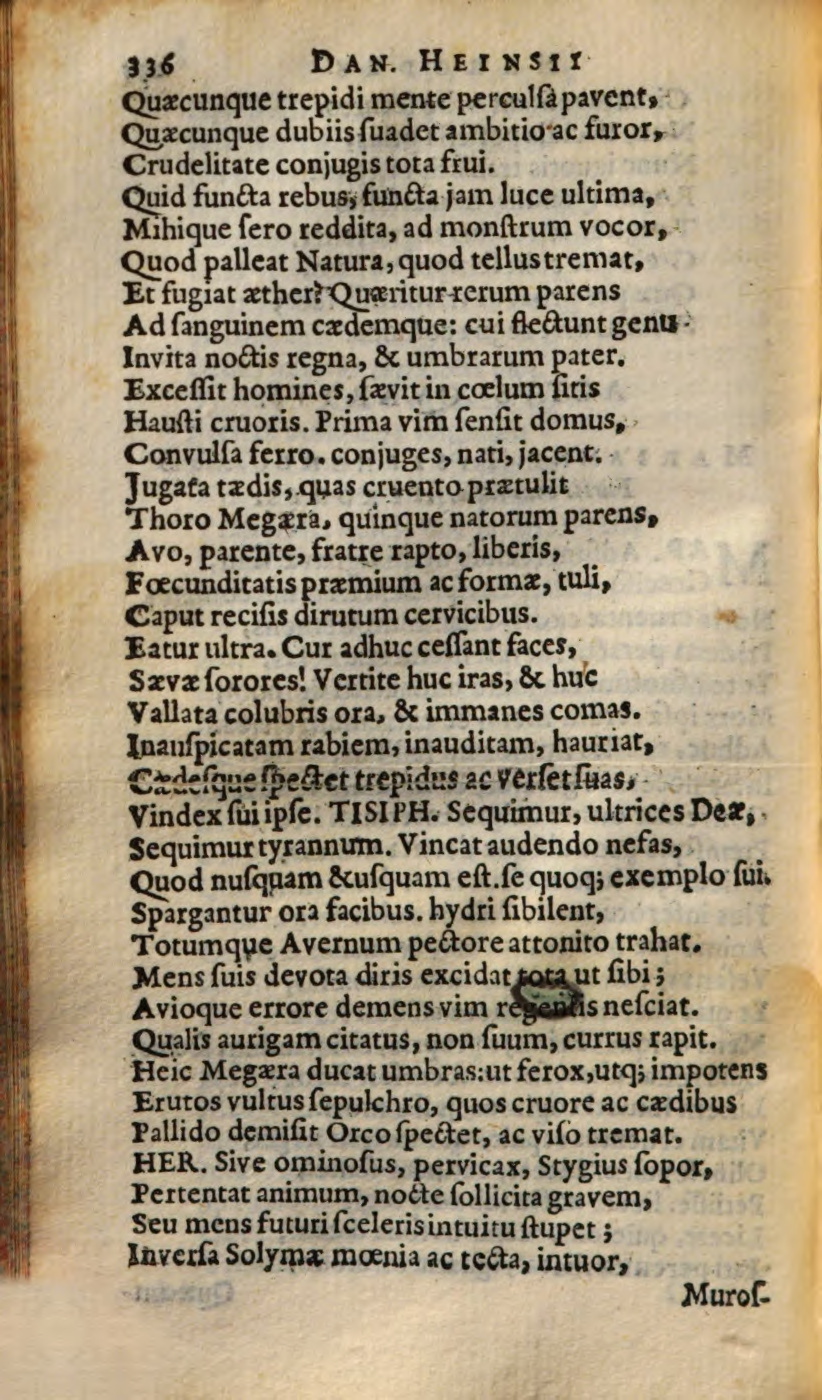 336 DAN. HEINSII
Quæcunque trepidi mente perculſa pavent,
Quæcunque dubiis ſuadet ambitio ac furor,
Crudelitate conjugis tota frui.
Quid functa rebus, functa jam luce ultima,
Mihique ſero reddita, ad monſtrum vocor,
Quod palleat Natura, quod tellus tremat,
Et fugiat æther? Quæritur rerum parens
Ad ſanguinem cædemque: cui flectunt genu
Invita noctis regna, & umbrarum pater.
Exceſſit homines, ſævit in cœlum ſitis
Hauſti cruoris. Prima vim ſenſit domus,
Convulſa ferro. conjuges, nati, jacent.
Jugata tædis, quas cruento prætulit
Thoro Megæra, quinque natorum parens,
Avo, parente, fratre rapto, liberis,
Fœcunditatis præmium ac formæ, tuli,
Caput reciſis dirutum cervicibus.
Eatur ultra. Cur adhuc ceſſant faces,
Sævæ ſorores! Vertite huc iras, & huc
Vallata colubris ora, & immanes comas.
Inauſpicatam rabiem, inauditam, hauriat,
Cædeſque ſpectet trepidus ac verſet ſuas,
Vindex ſui ipſe. TISIPH. Sequimur, ultrices Deæ,
Sequimur tyrannum. Vincat audendo nefas,
Quod nuſquam & uſquam eſt. ſe quoq; exemplo ſui.
Spargantur ora facibus. hydri ſibilent,
Totumque Avernum pectore attonito trahat.
Mens ſuis devota diris excidat tota ut ſibi;
Avioque errore demens vim regentis neſciat.
Qualis aurigam citatus, non ſuum, currus rapit.
Heic Megæra ducat umbras: ut ferox, utq; impotens
Erutos vultus ſepulchro, quos cruore ac cædibus
Pallido demiſit Orco ſpectet, ac viſo tremat.
HER. Sive ominoſus, pervicax, Stygius ſopor,
Pertentat animum, nocte ſollicita gravem,
Seu mens futuri ſceleris intuitu ſtupet;
Inverſa Solymæ mœnia ac tecta, intuor,
Muroſ-